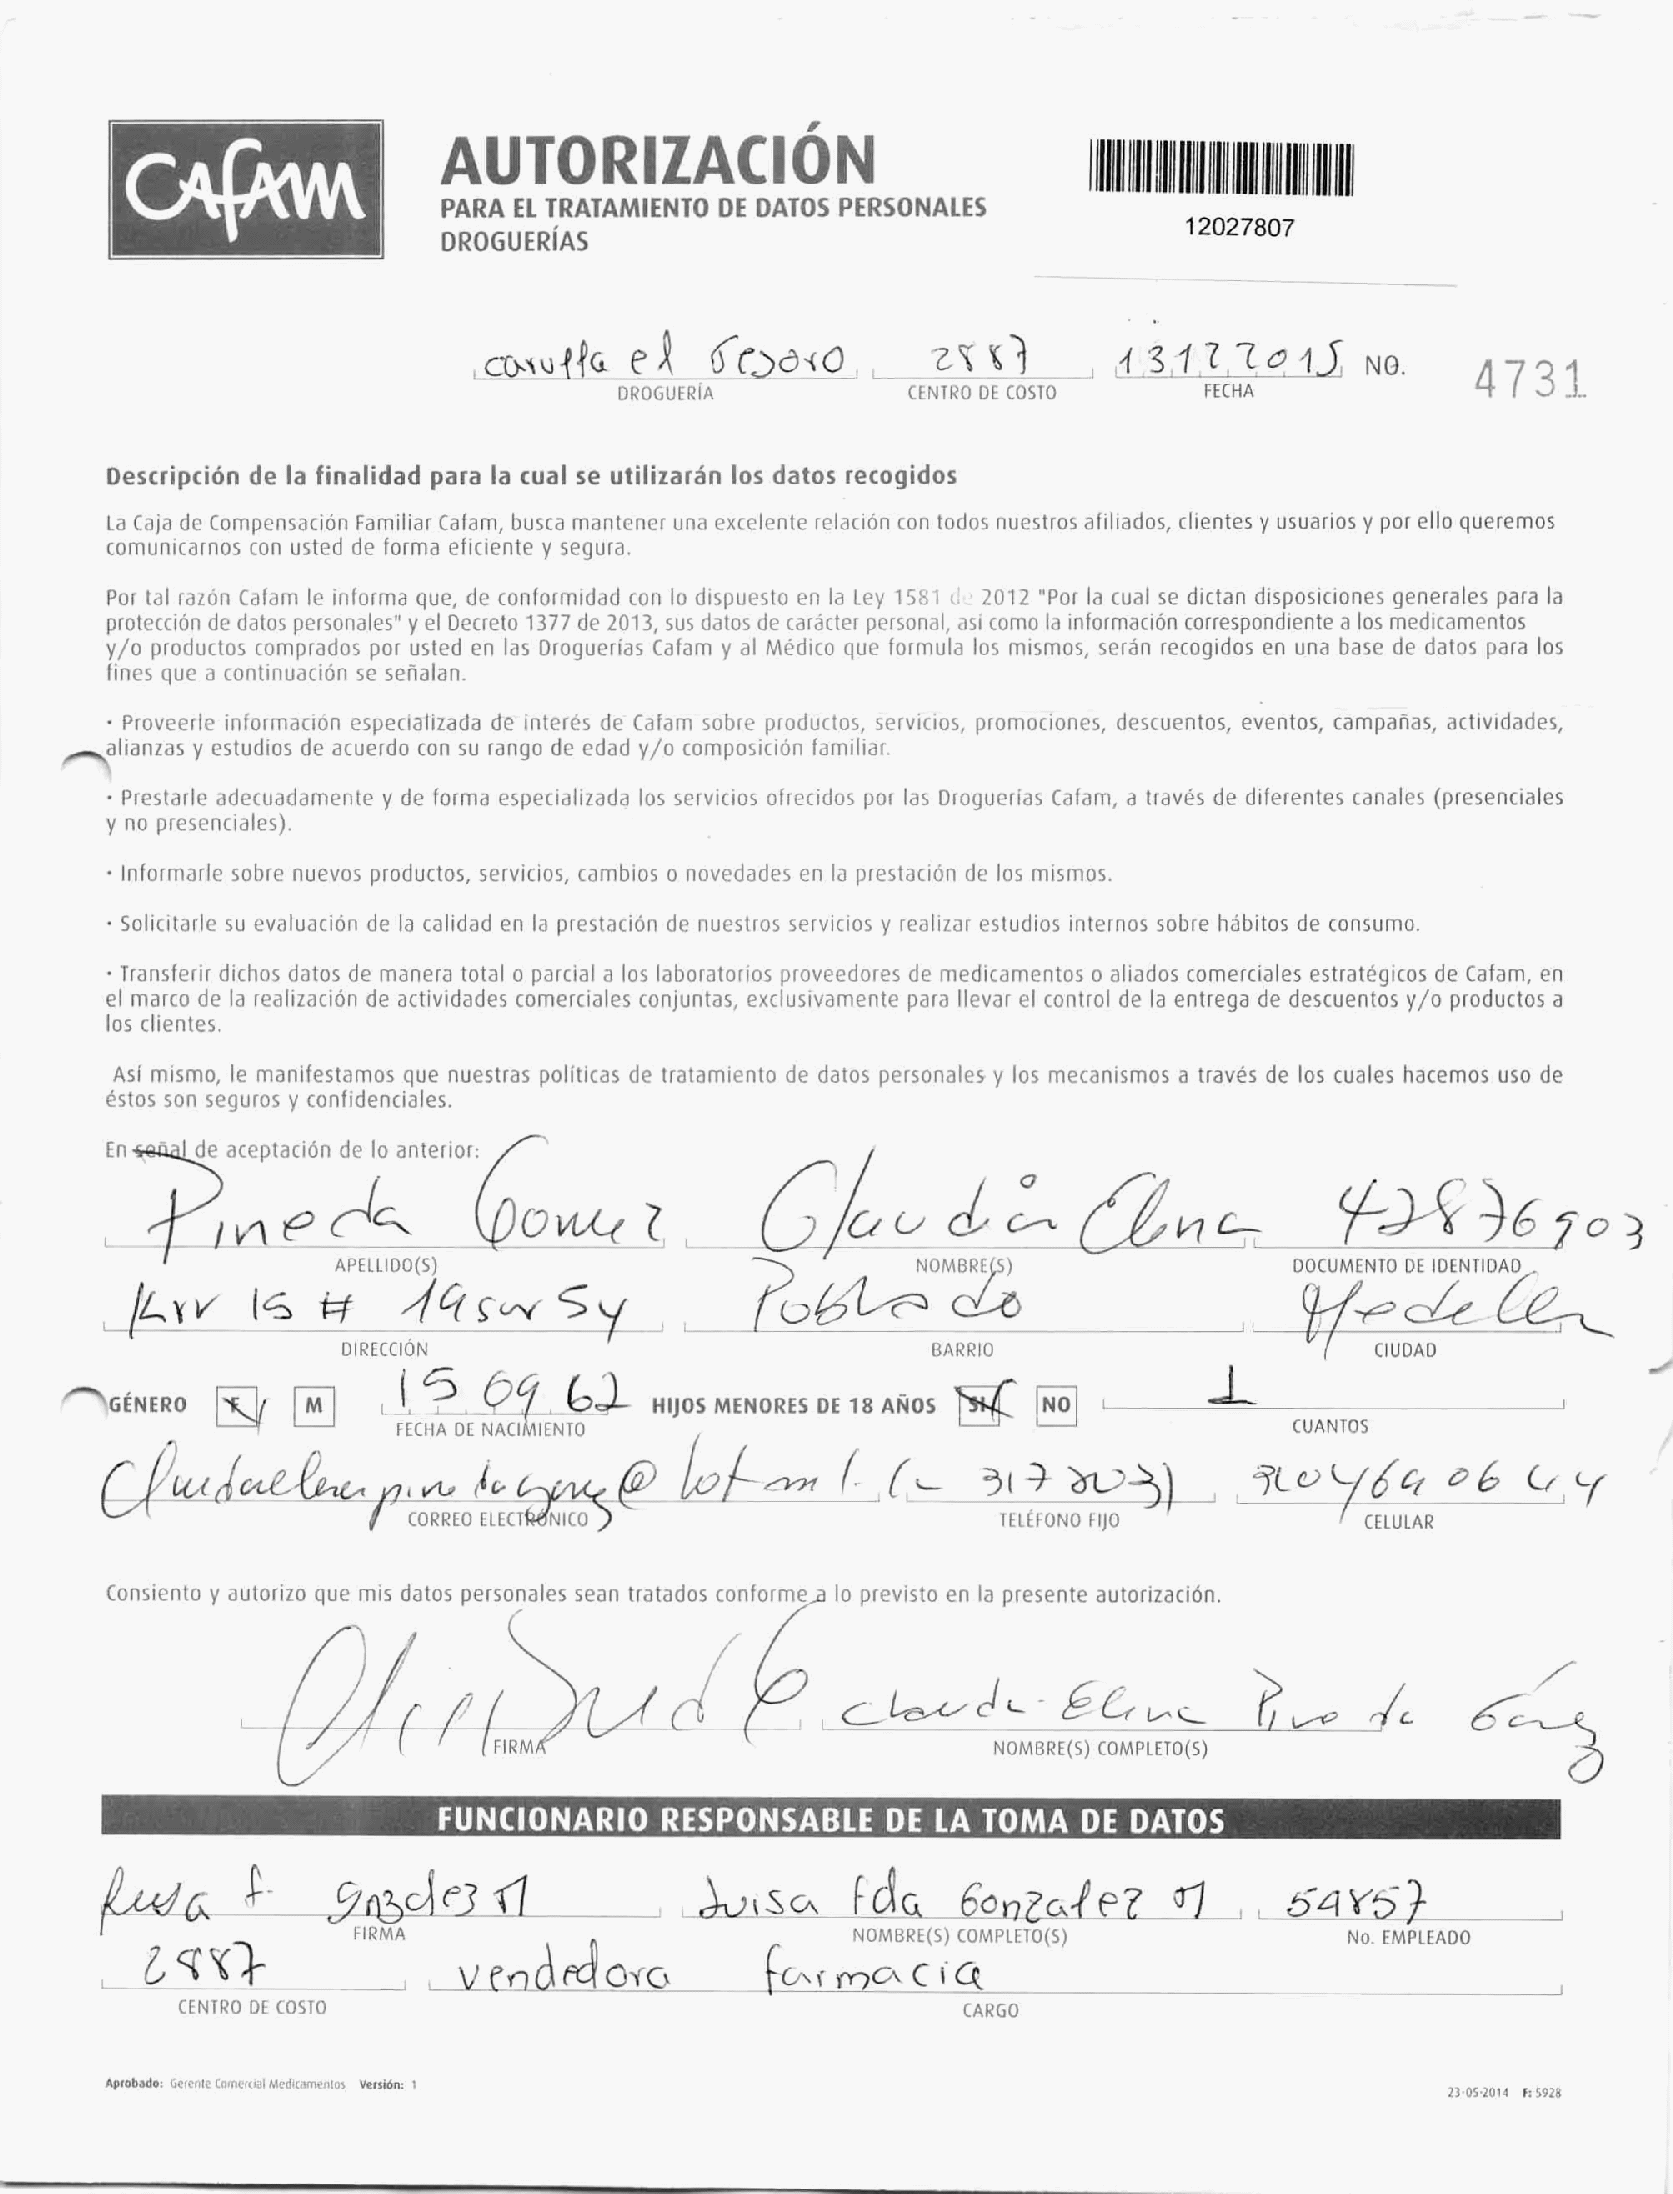 CAFAM
AUTORIZACIÓN
PARA EL TRATAMIENTO DE DATOS PERSONALES
DROGUERÍAS
12027807
carulla el Tesoro 2887 13122015 NO. 4731
DROGUERÍA CENTRO DE COSTO FECHA
Descripción de la finalidad para la cual se utilizarán los datos recogidos
La Caja de Compensación Familiar Cafam, busca mantener una excelente relación con todos nuestros afiliados, clientes y usuarios y por ello queremos
comunicarnos con usted de forma eficiente y segura.
Por tal razón Cafam le informa que, de conformidad con lo dispuesto en la Ley 1581 de 2012 "Por la cual se dictan disposiciones generales para la
protección de datos personales" y el Decreto 1377 de 2013, sus datos de carácter personal, asi como la información correspondiente a los medicamentos
y/o productos comprados por usted en las Droguerías Cafam y al Médico que formula los mismos, serán recogidos en una base de datos para los
fines que a continuación se señalan.
· Proveerle información especializada de interés de Cafam sobre productos, servicios, promociones, descuentos, eventos, campañas, actividades,
alianzas y estudios de acuerdo con su rango de edad y/o composición familiar.
· Prestarle adecuadamente y de forma especializada los servicios ofrecidos por las Droguerías Cafam, a través de diferentes canales (presenciales
y no presenciales).
· Informarle sobre nuevos productos, servicios, cambios o novedades en la prestación de los mismos.
· Solicitarle su evaluación de la calidad en la prestación de nuestros servicios y realizar estudios internos sobre hábitos de consumo.
· Transferir dichos datos de manera total o parcial a los laboratorios proveedores de medicamentos o aliados comerciales estratégicos de Cafam, en
el marco de la realización de actividades comerciales conjuntas, exclusivamente para llevar el control de la entrega de descuentos y/o productos a
los clientes.
Así mismo, le manifestamos que nuestras políticas de tratamiento de datos personales y los mecanismos a través de los cuales hacemos uso de
éstos son seguros y confidenciales.
En señal de aceptación de lo anterior:
Pineda Gomez Claudia Elena 42876903
APELLIDO(S) NOMBRE(S) DOCUMENTO DE IDENTIDAD
Krr 15 # 19 sur 54 Poblado Medellin
DIRECCIÓN BARRIO CIUDAD
GÉNERO F M 15 09 62 HIJOS MENORES DE 18 AÑOS SI NO 1
FECHA DE NACIMIENTO CUANTOS
CORREO ELECTRÓNICO TELÉFONO FIJO CELULAR
Consiento y autorizo que mis datos personales sean tratados conforme a lo previsto en la presente autorización.
Claudia Elena Pineda Gómez
FIRMA NOMBRE(S) COMPLETO(S)
FUNCIONARIO RESPONSABLE DE LA TOMA DE DATOS
Luisa f. gnzalez M Luisa fda Gonzalez M 59857
FIRMA NOMBRE(S) COMPLETO(S) No. EMPLEADO
2887 vendedora farmacia
CENTRO DE COSTO CARGO
Aprobado: Gerente Comercial Medicamentos Versión: 1
23-05-2014 F: 5928